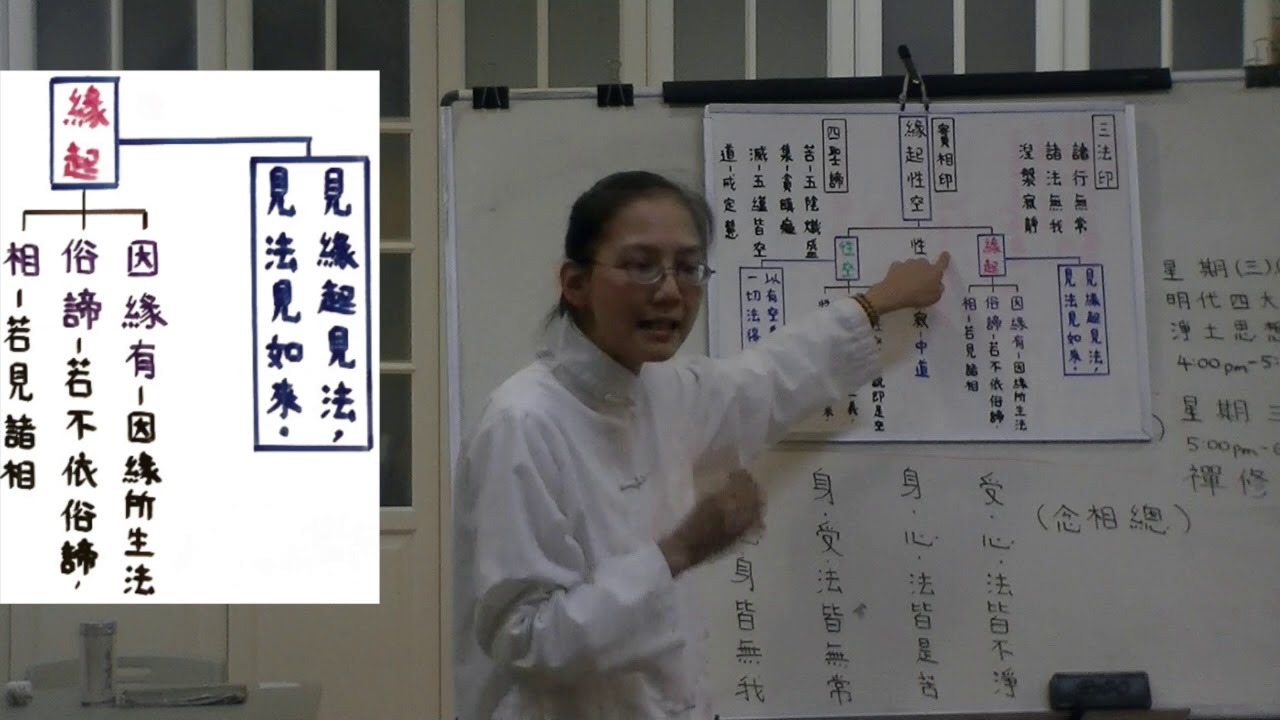 緣起
見緣起見法，
見法見如來。
因緣有－因緣所生法
俗諦－若不依俗諦，
相－若見諸相
三法印
諸行無常
諸法無我
涅槃寂靜
實相印
緣起性空
四聖諦
苦－五陰熾盛
集－貪瞋癡
滅－五蘊皆空
道－戒定慧
緣起
見緣起見法，
見法見如來。
因緣有－因緣所生法
俗諦－若不依俗諦，
相－若見諸相
性
寂－中道
性空
以有空
一切法得
說即是空
義，
星期(三)
明代四大
淨土思想
4:00pm-5:
星期三
5:00pm-6
禪修
(念相總)
受．心．法皆不淨
身．心．法皆是苦
身．受．法皆無常
身皆無我